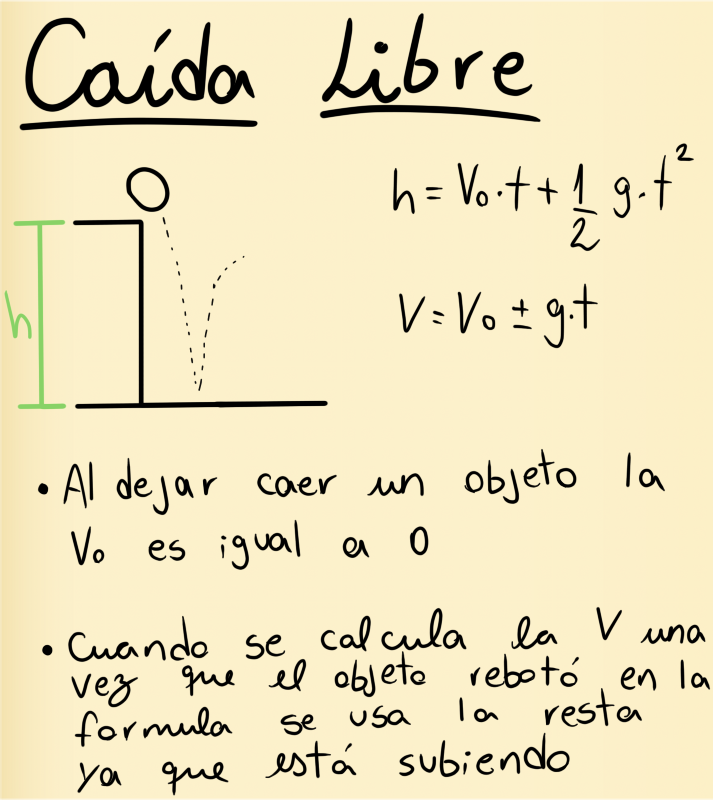 Caída Libre
h = V₀·t + 1/2 g·t²
V = V₀ ± g·t
h
• Al dejar caer un objeto la
V₀ es igual a 0
• Cuando se calcula la V una
vez que el objeto rebotó en la
formula se usa la resta
ya que está subiendo